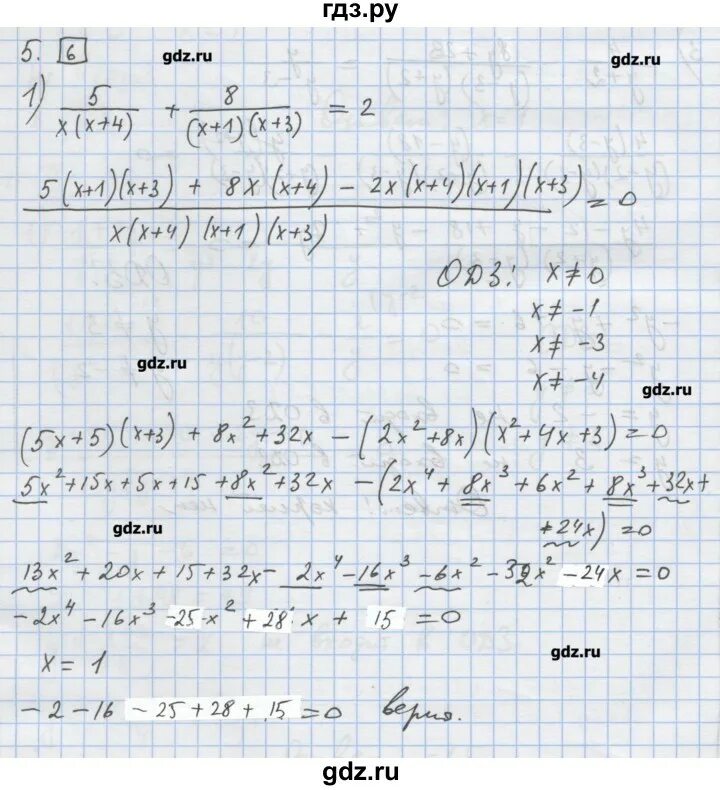 гдз.ру
5. 6
gdz.ru
gdz.ru
1) 5/(x(x+4)) + 8/((x+1)(x+3)) = 2
(5(x+1)(x+3) + 8x(x+4) - 2x(x+4)(x+1)(x+3))/(x(x+4)(x+1)(x+3)) = 0
ОДЗ! x ≠ 0
x ≠ -1
x ≠ -3
gdz.ru
x ≠ -4
gdz.ru
(5x+5)(x+3) + 8x² + 32x - (2x² + 8x)(x² + 4x + 3) = 0
5x² + 15x + 5x + 15 + 8x² + 32x - (2x⁴ + 8x³ + 6x² + 8x³ + 32x +
gdz.ru
+ 24x) = 0
13x² + 20x + 15 + 32x - 2x⁴ - 16x³ - 6x² - 32x² - 24x = 0
-2x⁴ - 16x³ - 25·x² + 28·x + 15 = 0
x = 1
gdz.ru
-2 - 16 - 25 + 28 + 15 = 0 верно.
gdz.ru